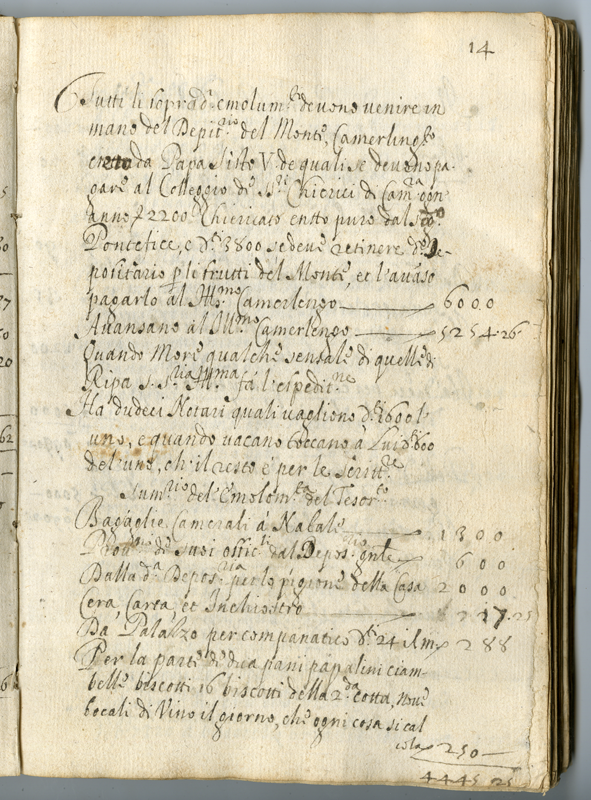 14
Tutti li sopradi. emolum.ti devono venire in
mano del Depit.rio del Monte, Camerlingto
eretto da Papa Sisto V. de quali se devono pa-
gare al Colleggio de SS.ri Chierici di Cam.ra ogn
anno 2200. Chiericato eretto pure dal
Pontefice, e di. 3800 se deve retinere di. De-
positario p li frutti del Monte, et l'avaso
pagarlo al Ill.mo Camerlengo 6000
Avansano al Ill.mo Camerlengo 5254.26
Quando More qualche sensale di quelle di
Ripa S.S.ria Ill.ma fà l'espedit.ne
Ha dudeci Notari quali vagliono di. 1600 l'
uno, e quando vacano toccano à Lui di. 600
del'uno, ch'il resto è per le Scritt.re
Sum.rio del'Emolom.ti del Tesor.re
Bagaglie Camerali à Natale 1300
de suoi offic.li dal Depos.rio 600
Dalla d.a Depos.ria per la pigione della Casa 2000
Cera, Carta, et Inchiostro 227.25
Da Palazzo per companatico di. 24 il m. 288
Per la parte di dieci pani papalini ciam-
belle biscotti 16 biscotti della 2.da cotta, nove
bocali di Vino il giorno, che ogni cosa si cal
cola 250
4445 25